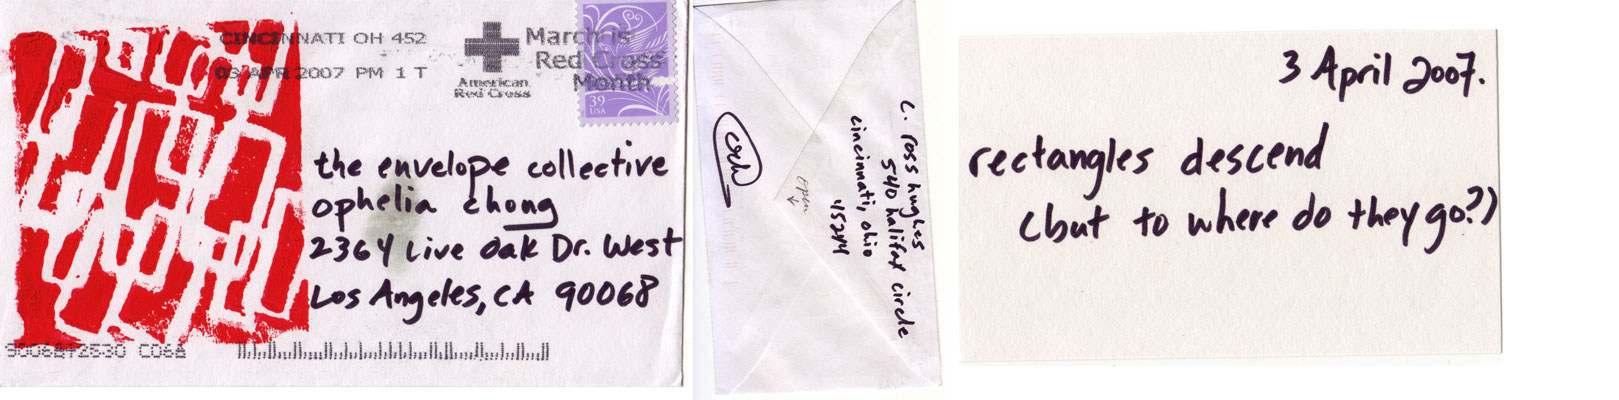 CINCINNATI OH 452
03 APR 2007 PM 1 T
American
Red Cross
March is
Red Cross
Month
39
USA
the envelope collective
ophelia chong
2364 Live oak Dr. West
Los Angeles, CA 90068
90068+2830 C068
crh
open
c. ross hughes
540 halifax circle
cincinnati, ohio
45244
3 April 2007.
rectangles descend
(but to where do they go?)